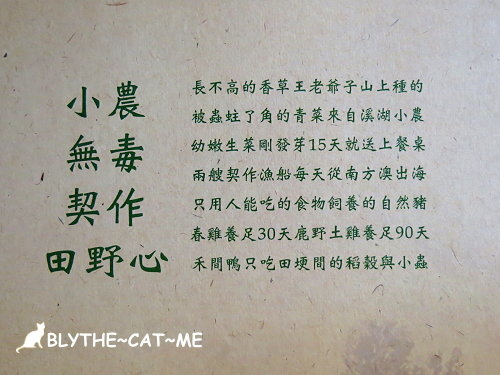 小農
無毒
契作
田野心
長不高的香草王老爺子山上種的
被蟲蛀了角的青菜來自溪湖小農
幼嫩生菜剛發芽15天就送上餐桌
兩艘契作漁船每天從南方澳出海
只用人能吃的食物飼養的自然豬
春雞養足30天鹿野土雞養足90天
禾間鴨只吃田埂間的稻穀與小蟲
BLYTHE~CAT~ME